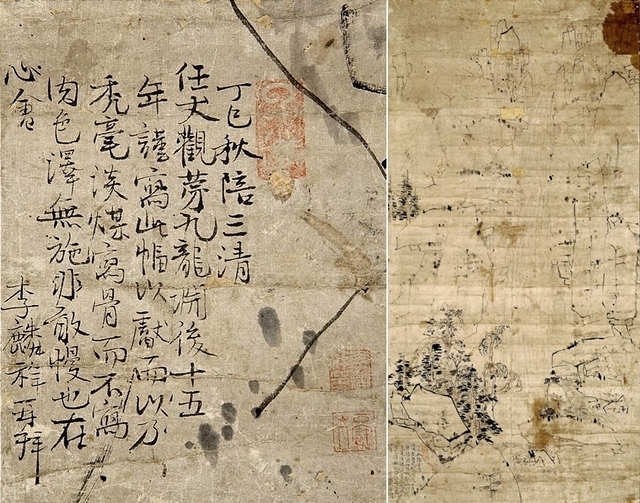 丁巳秋陪三清
任丈觀九龍淵後十五
年謹寫此幅以獻而以乃
禿毫淡煤寫骨而不寫
肉色澤無施非敢慢也在
心會
李麟祥再拜